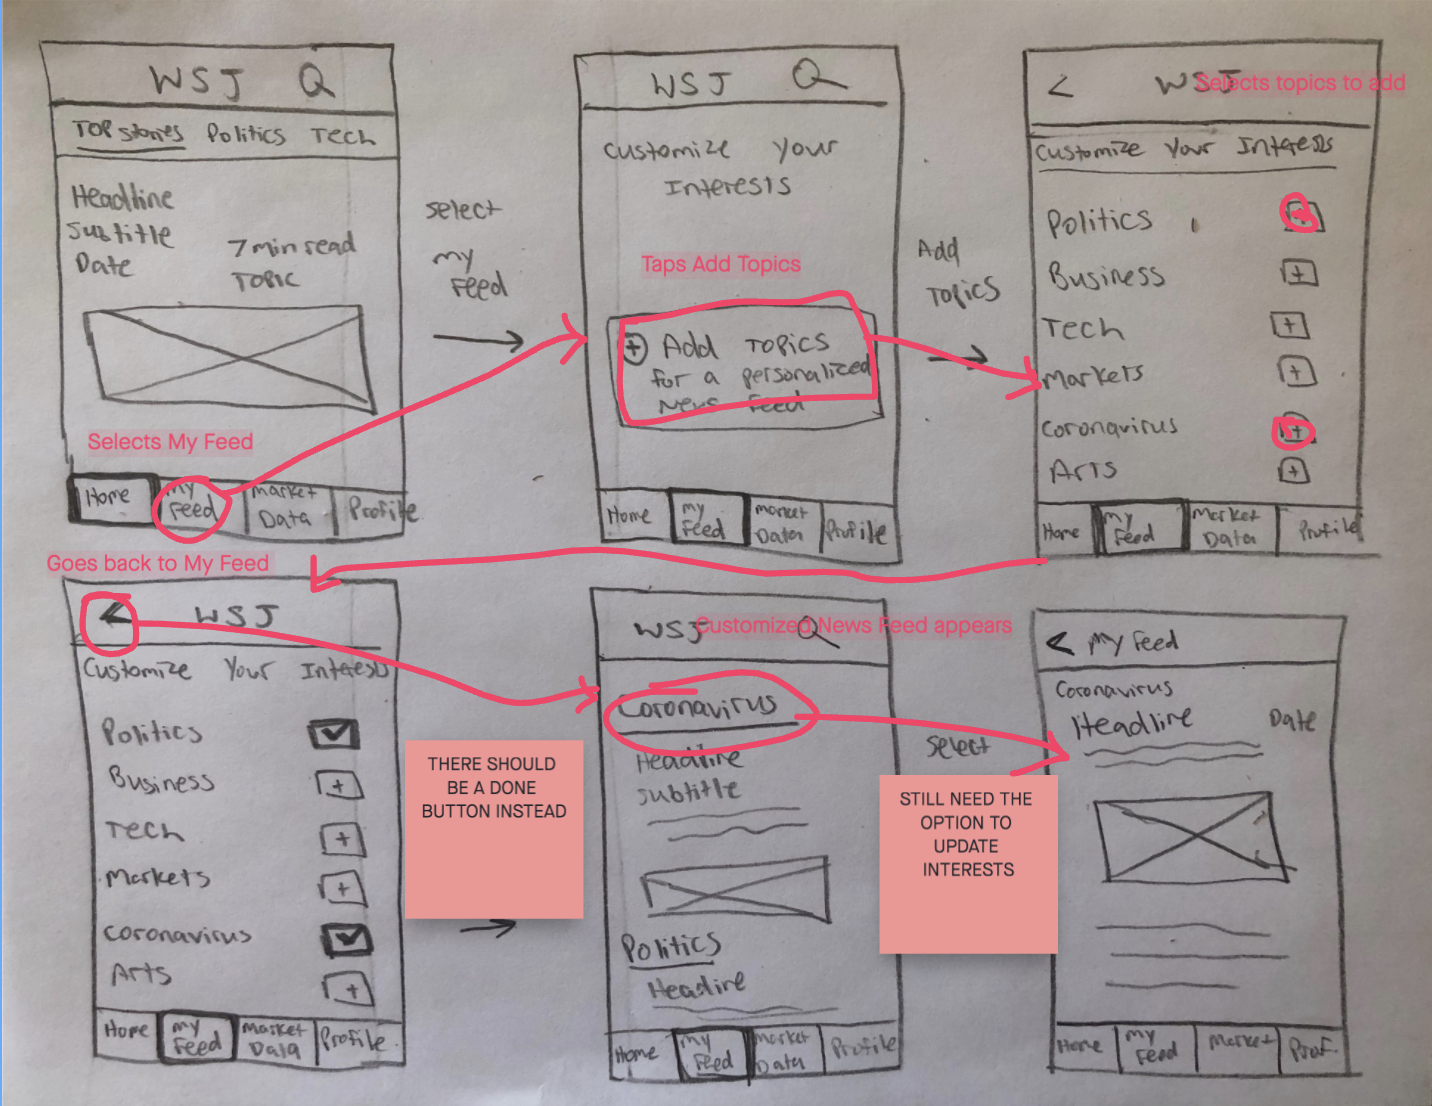 WSJ
TOP stories Politics Tech
Headline
Subtitle
Date
7 min read
TOPIC
Selects My Feed
Home
my
Feed
market
Data
Profile
select
my
Feed
WSJ
customize your
Interests
Taps Add Topics
+ Add Topics
for a personalized
News Feed
Home
my
Feed
market
Data
Profile
Add
Topics
< WSJ
Selects topics to add
Customize Your Interests
Politics +
Business +
Tech +
markets +
coronavirus +
Arts +
Home
my
Feed
Market
Data
Profile
Goes back to My Feed
WSJ
Customize Your Interests
Politics
Business +
Tech +
markets +
coronavirus
Arts +
Home
my
Feed
market
Data
Profile
THERE SHOULD
BE A DONE
BUTTON INSTEAD
WSJ
Customized News Feed appears
Coronavirus
Headline
subtitle
Politics
Headline
Home
my
Feed
market
Data
Profile
Select
STILL NEED THE
OPTION TO
UPDATE
INTERESTS
< my Feed
Coronavirus
Headline Date
Home
my
Feed
Market
Prof.